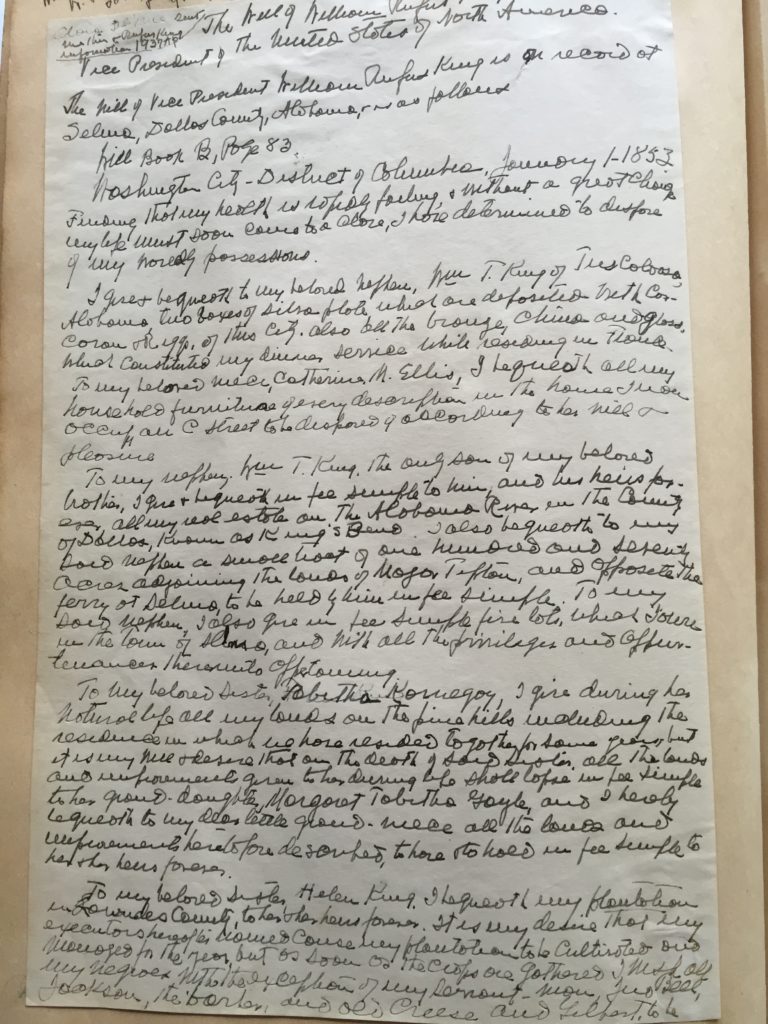 The Will of William Rufus
Vice President of The United States of North America.
information 1937
The Will of Vice President William Rufus King is on record at
Selma, Dallas County, Alabama, & is as follows
Will Book B, Page 83.
Washington City - District of Columbia, January 1 - 1853
Finding that my health is rapidly failing, & without a great change
my life must soon come to a close, I have determined to dispose
of my worldly possessions.
I give & bequeath to my beloved nephew, Wm T. King of Tuscaloosa,
Alabama, two boxes of silver plate which are deposited with Cor-
coran & Riggs, of this City. also all the bronze, China and glass,
which constituted my dinner service while residing in France.
To my beloved niece, Catherine M. Ellis, I bequeath all my
household furniture of every description in the house I now
occupy on C street to be disposed of according to her will &
pleasure
To my nephew. Wm T. King. the only son of my beloved
brother, I give & bequeath in fee simple to him, and his heirs for-
ever, all my real estate on the Alabama River in the County
of Dallas, known as King's Bend. I also bequeath to my
said nephew a small tract of one hundred and seventy
acres adjoining the lands of Major Tipton, and opposite the
ferry at Selma, to be held by him in fee simple. To my
said nephew, I also give in fee simple five lots, which I own
in the town of Selma, and with all the privileges and appur-
tenances thereunto appertaining
To my beloved sister, Tabitha Kornegay, I give during her
natural life all my lands on the pine hills including the
residence in which we have resided together for some years, but
it is my will & desire that on the death of said sister, all the lands
and improvements given to her during life shall lapse in fee simple
to her grand-daughter, Margaret Tabitha Gayle, and I hereby
bequeath to my dear little grand-niece all the lands and
improvements heretofore described, to have & to hold in fee simple to
her & her heirs forever.
To my beloved sister, Helen King. I bequeath my plantation
in Lowndes County, to her & her heirs forever. It is my desire that my
executors hereafter named cause my plantation to be cultivated and
managed for the year, but as soon as the crops are gathered I wish all
my negroes with the exception of my servant-man,
Jackson, the barber, and old Creese and Gilbert, to be